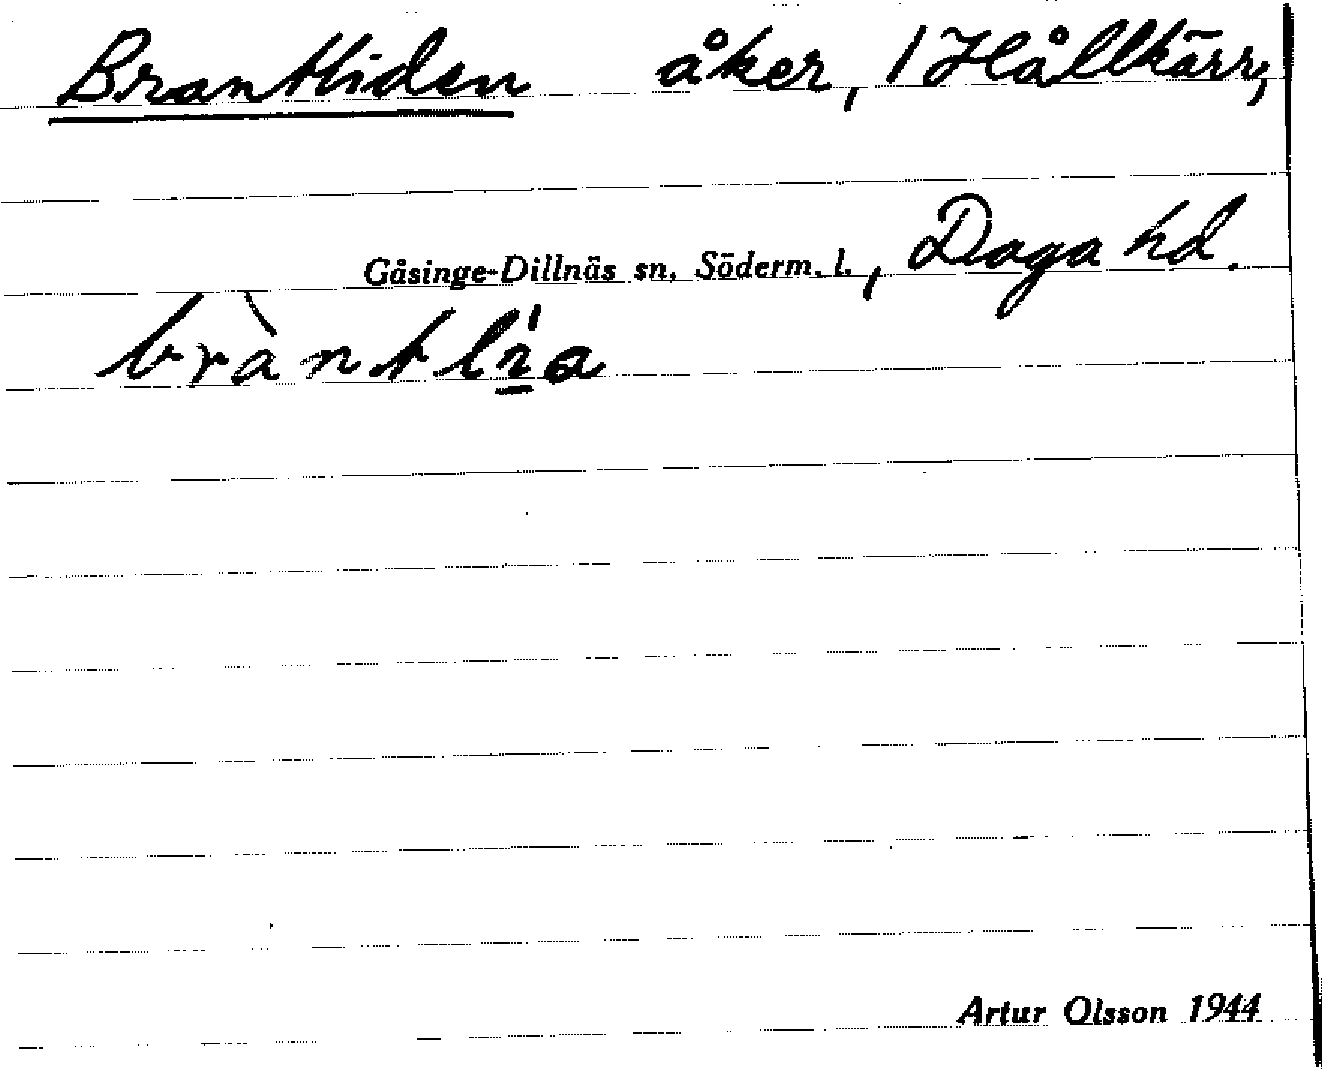 Brantliden åker, 1 Hållkärr,
Gåsinge-Dillnäs sn, Söderm. l., Daga hd.
bràntlı̱́a
Artur Olsson 1944